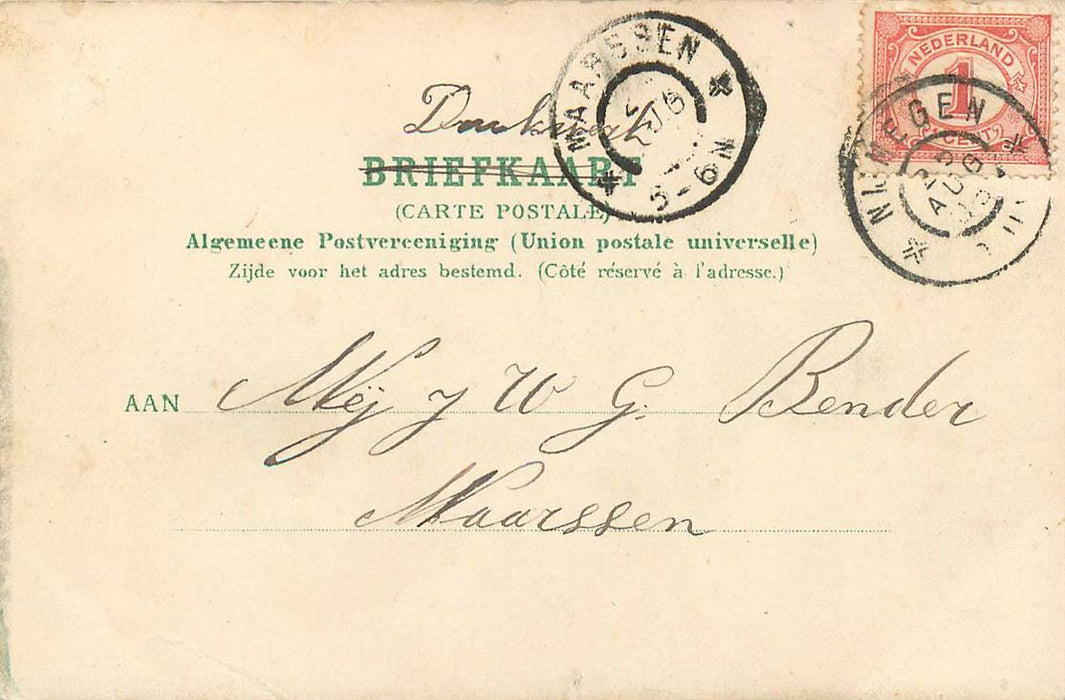 NEDERLAND
1
CENT
MAARSSEN
5-6N
NIJMEGEN
AUG
Drukwerk
BRIEFKAART
(CARTE POSTALE)
Algemeene Postvereeniging (Union postale universelle)
Zijde voor het adres bestemd. (Côté réservé à l'adresse.)
AAN Mej J W G. Bender
Maarssen